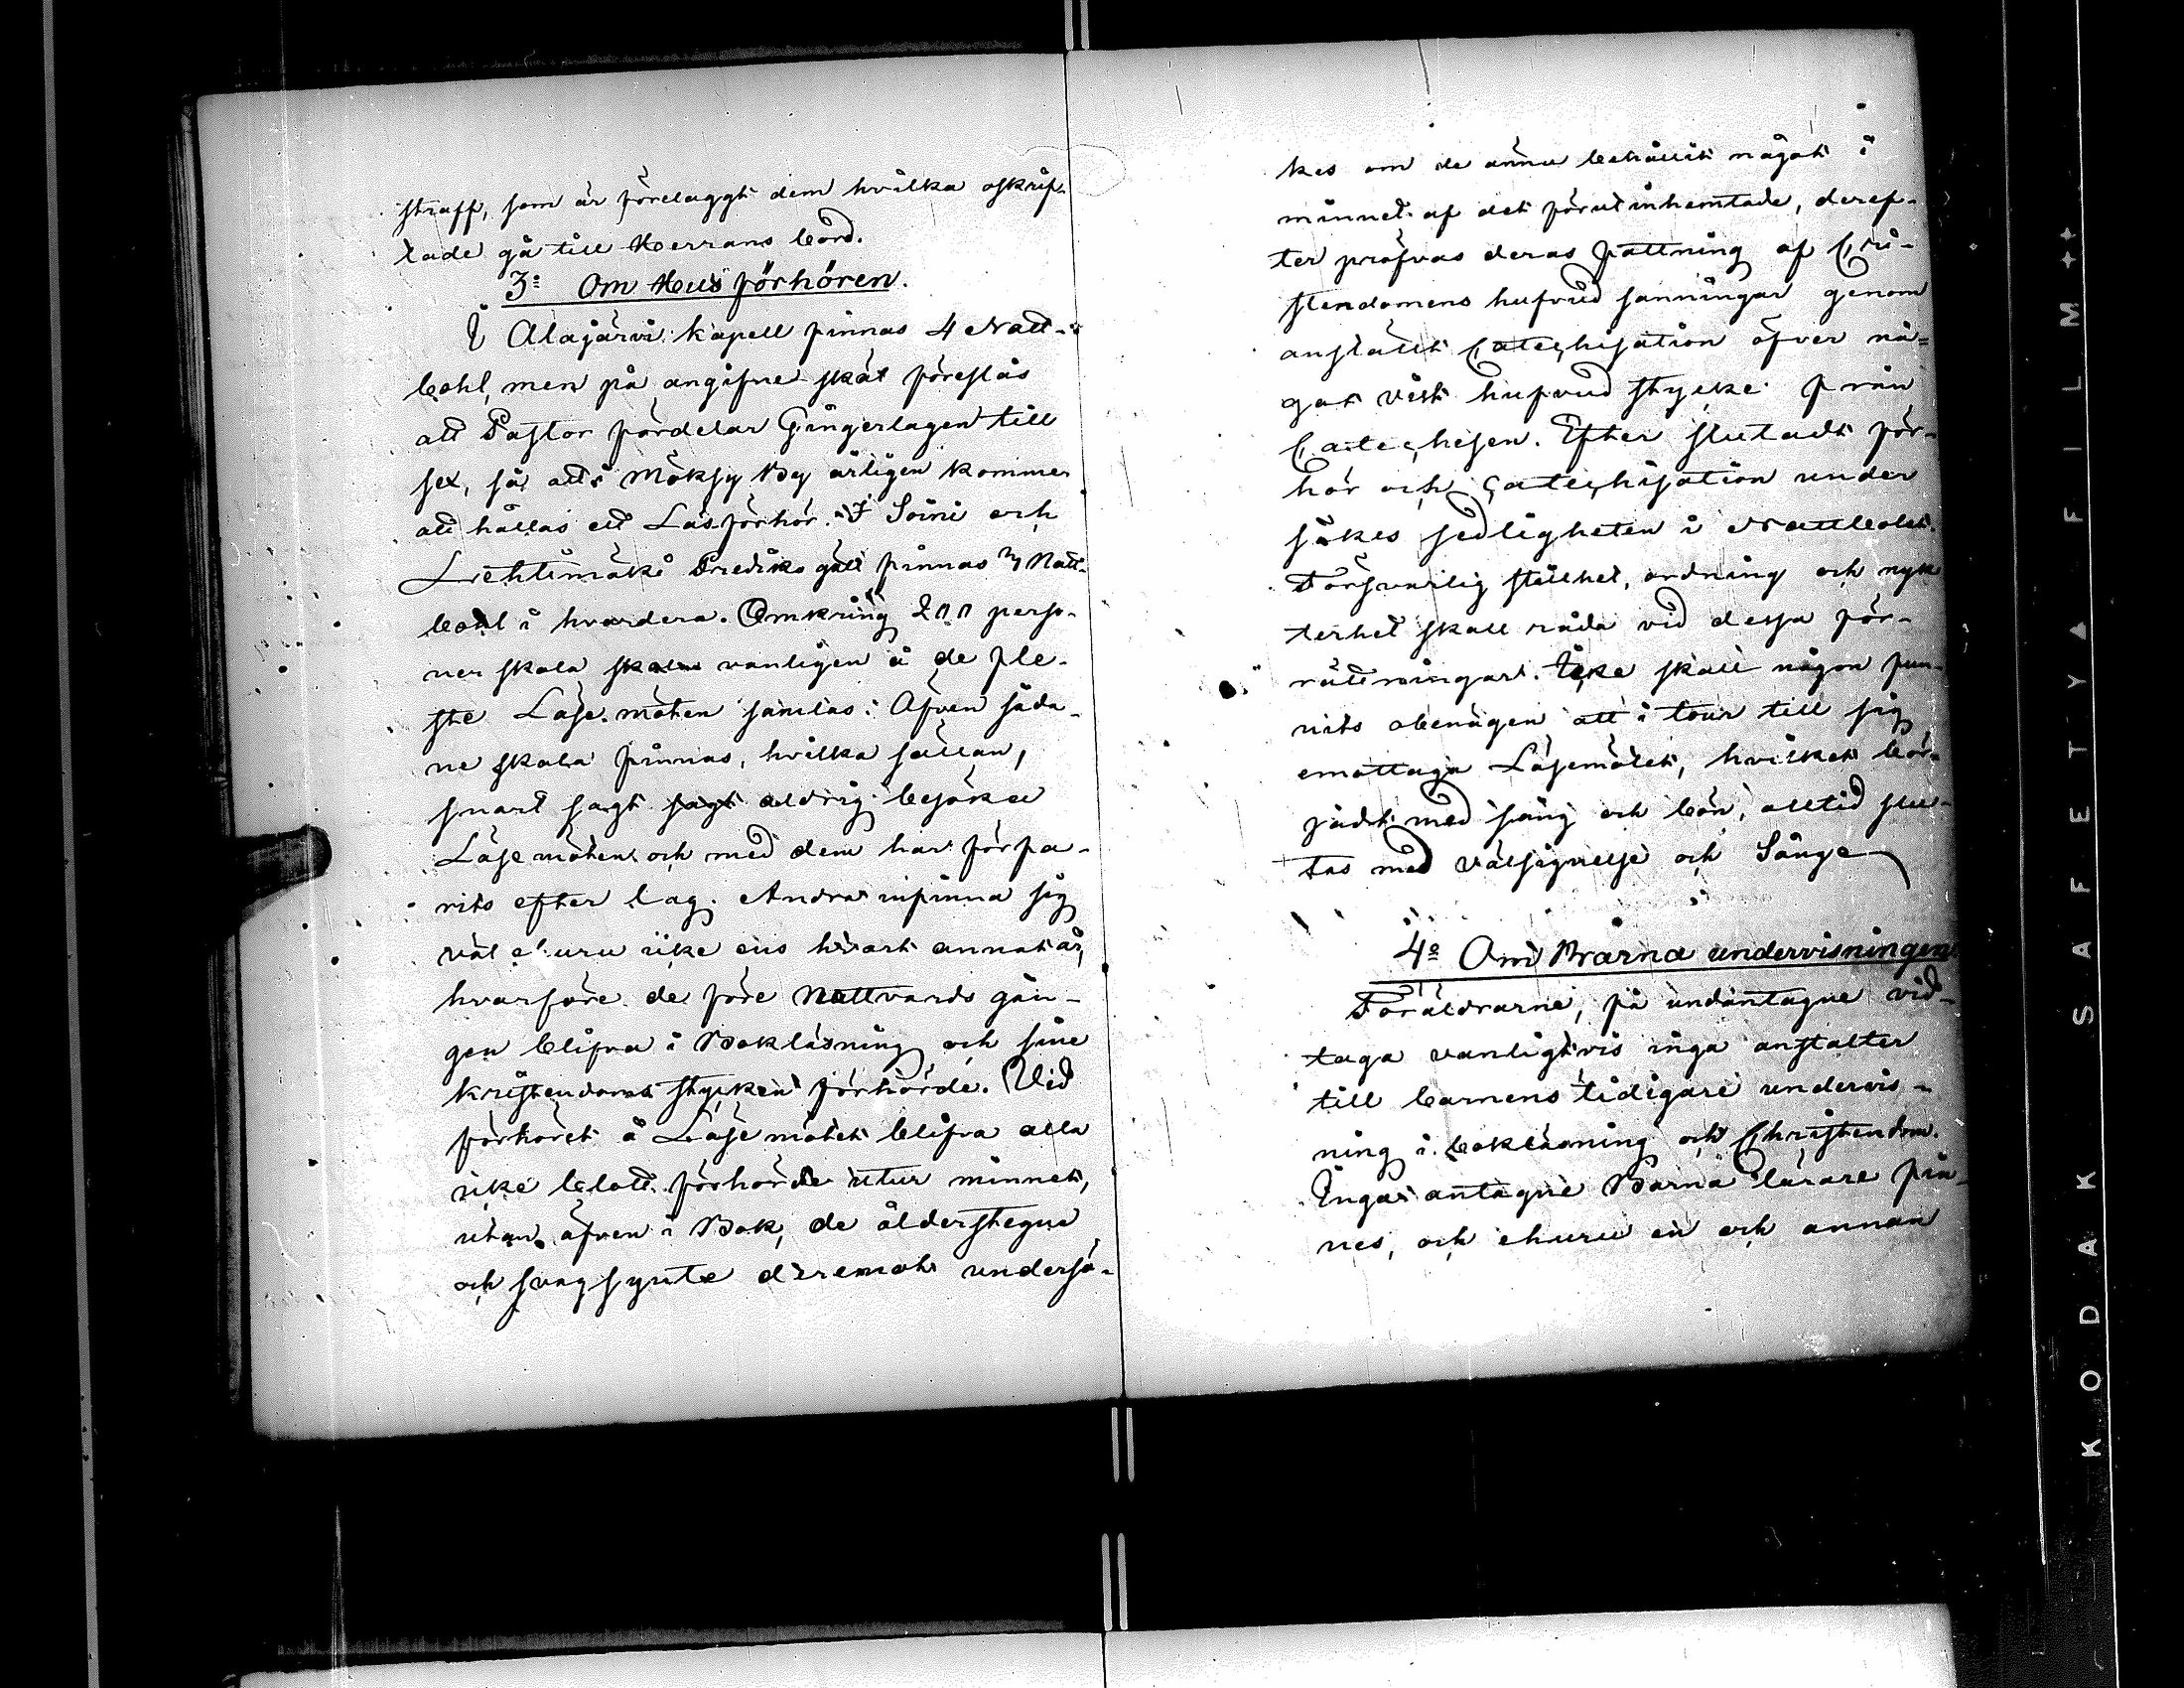 straff, som är förelaggt dem hvilka oskrif-
tade gå till Herrans bord.
3:o Om Husförhören.
I Alajärvi kapell finnas 4 Natt-
bohl, men på angifne skäl föreslås
att Pastor fördelar Gingerlagen till
sex, så att i Möksy By årligen kommer
att hållas ett Läsförhör. I Soini och
Lehtimäki Prediko gäll finnas 3 Natt-
bohl i hvardera. Omkring 200 perso-
ner skola vanligen å de fle-
ste Läse möten samlas. Äfven såda-
ne skola finnas, hvilka sällan,
snart sagt sagt aldrig besöka
Läse möten och med dem har förfa-
rits efter lag. Andra infinna sig
väl ehuru icke ens hvart annat år,
hvarföre de före Nattvards gån-
gen blifva i Bokläsning och sine
kristendoms stycken förhörde. Vid
förhöret å Läse mötet blifva alla
icke blott förhörde utur minnet,
utan äfven i Bok, de ålderstegne
och svagsynte deremot undersö-
kes om de ännu behållit något i
minnet af det förut inhemtade, deref-
ter pröfvas deras fattning af Cri-
stendomens hufvud sanningar genom
anställt Catechisation öfver nå-
got vist hufvud stycke från
Catechesen. Efter slutadt för-
hör och Catechisation under
sökes sedligheten i Nattbolet.
Försvarlig stillhet, ordning och nyk
terhet skall råda vid dessa för-
rättningar. Icke skall någon fun-
nits obenägen att i tour till sig
emottaga Läsemötet, hvilket bör-
jadt med sång och bön, alltid slu-
tas med välsignelse och Sånge
4:o Om Barna undervisningen
Föräldrarne, få undantagne vid-
taga vanligtvis inga anstalter
till barnens tidigare undervis-
ning i bokläsning och Christendom.
Inga antagne Barna lärare fin-
nes, och ehuru en och annan